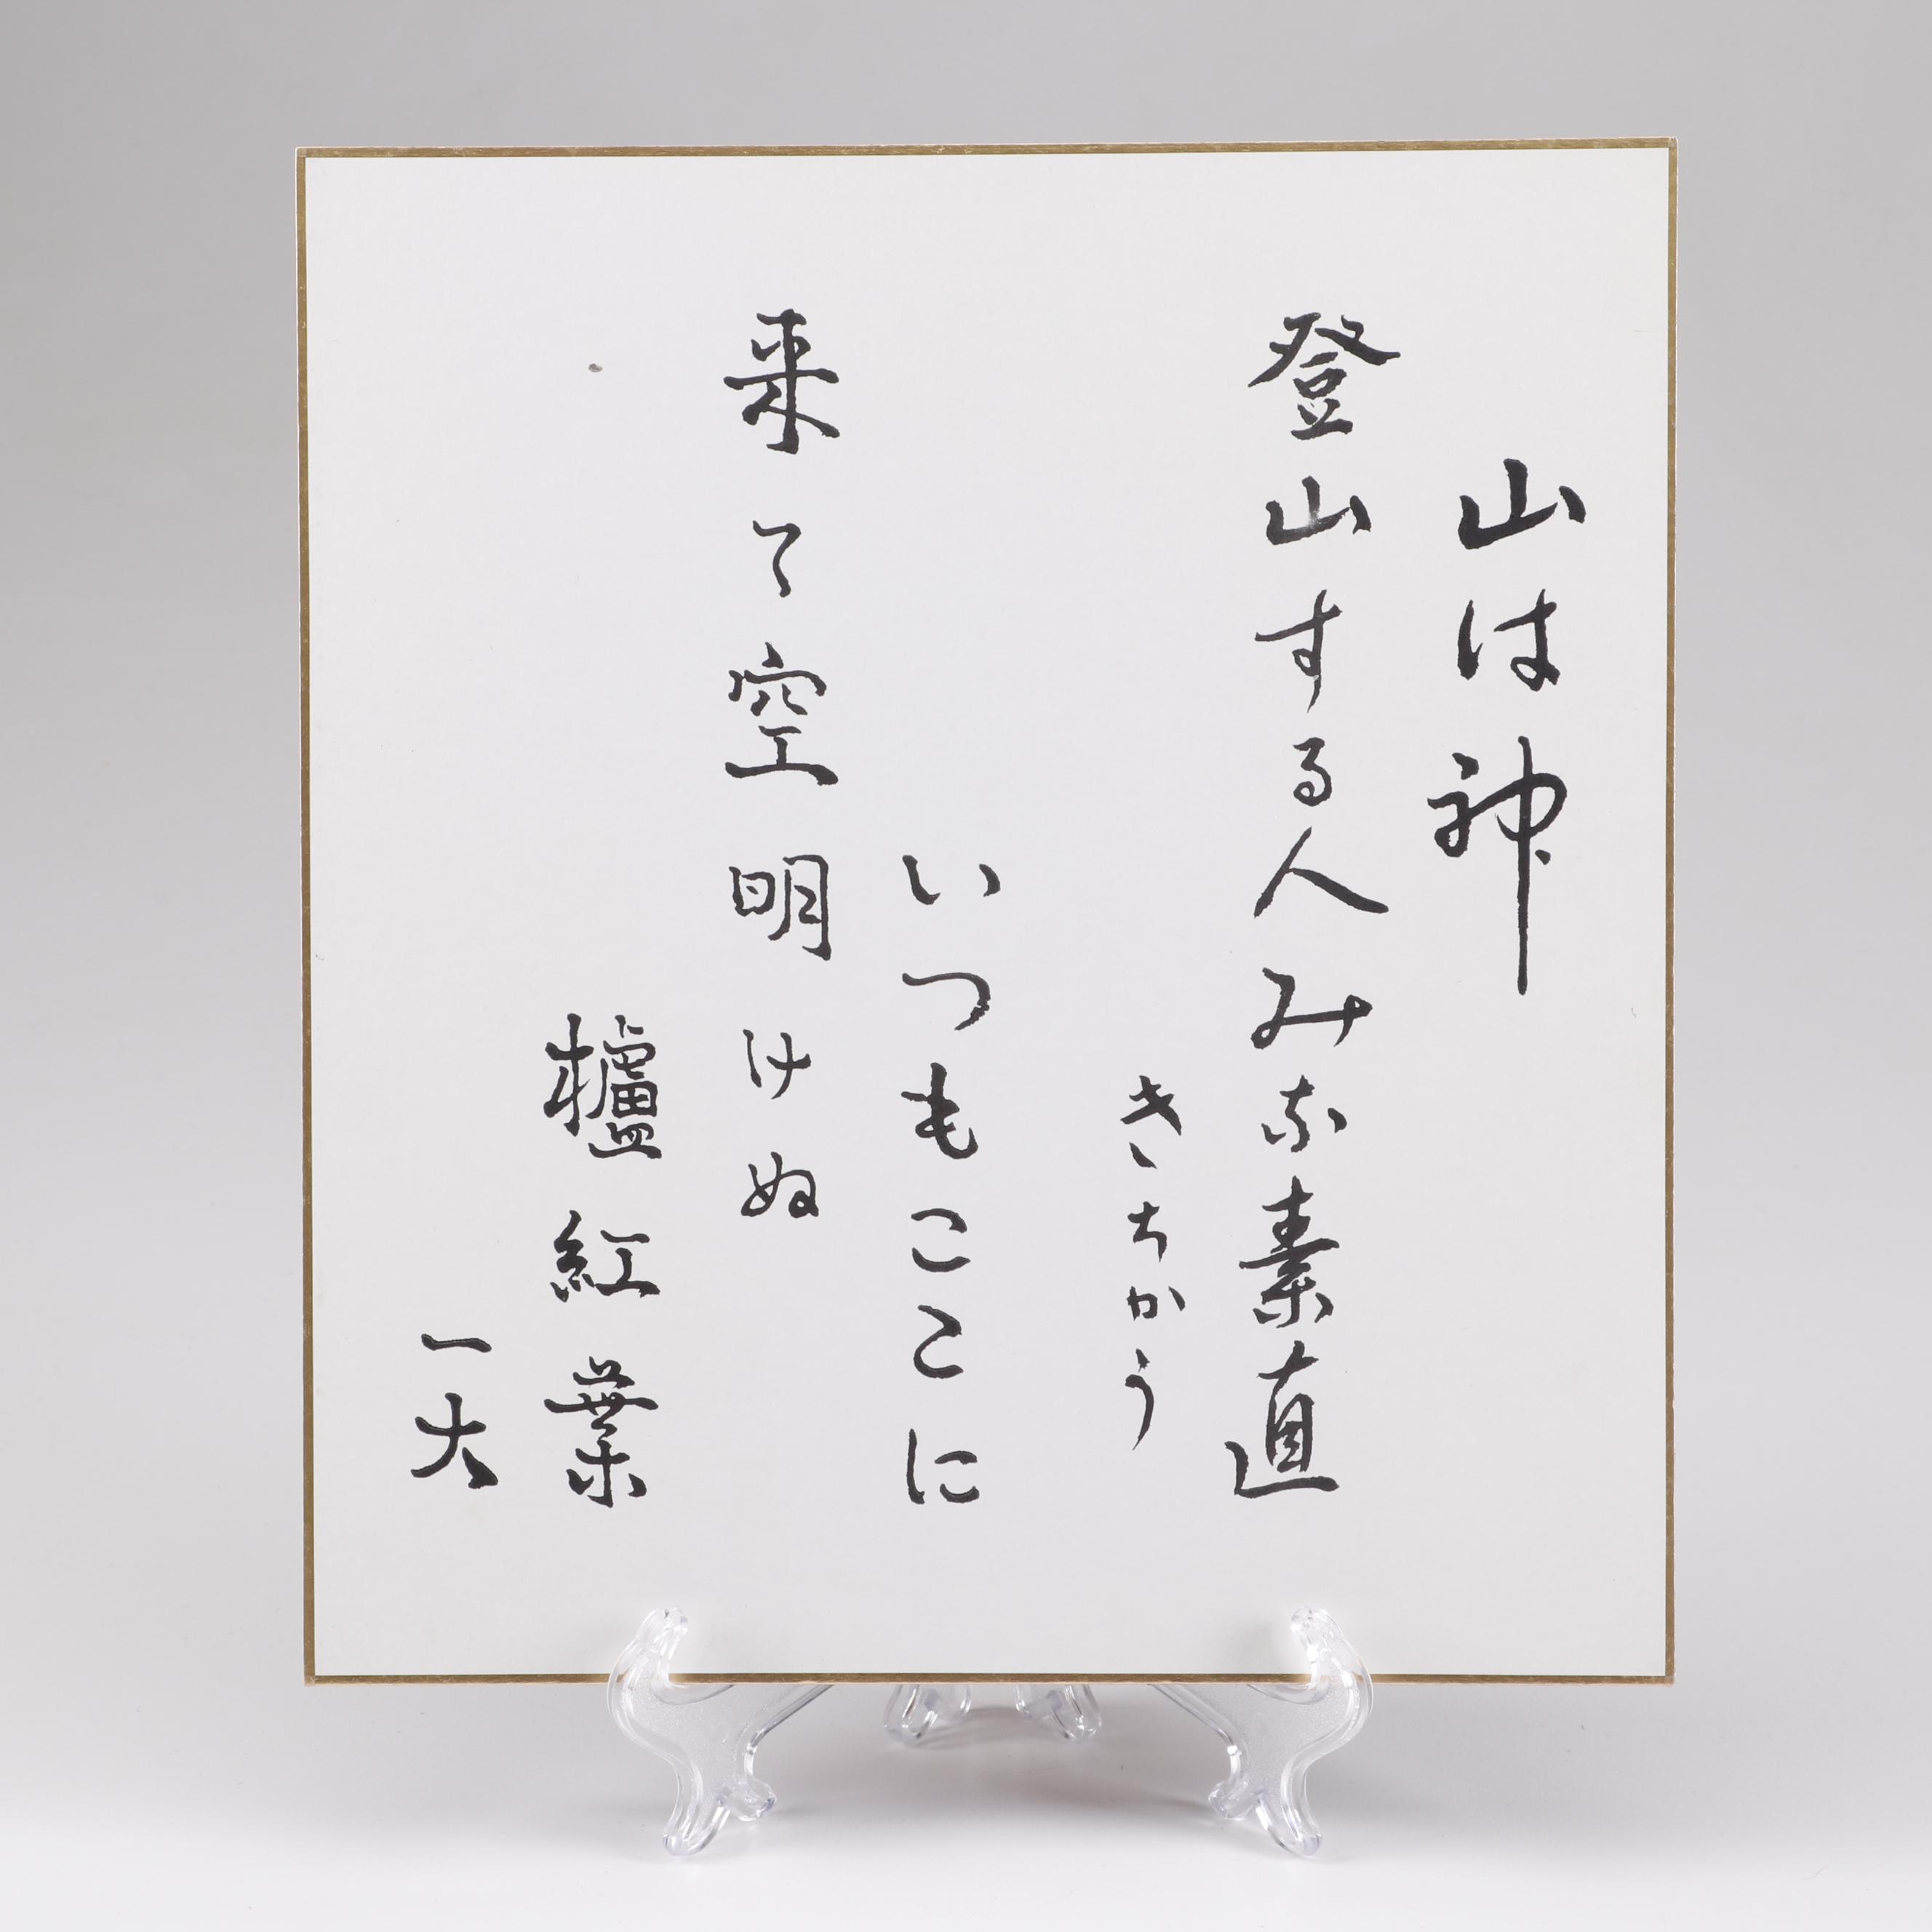 山は神
登山する人みな素直
きちかう
いつもここに
来て空明けぬ
櫨紅葉
一大